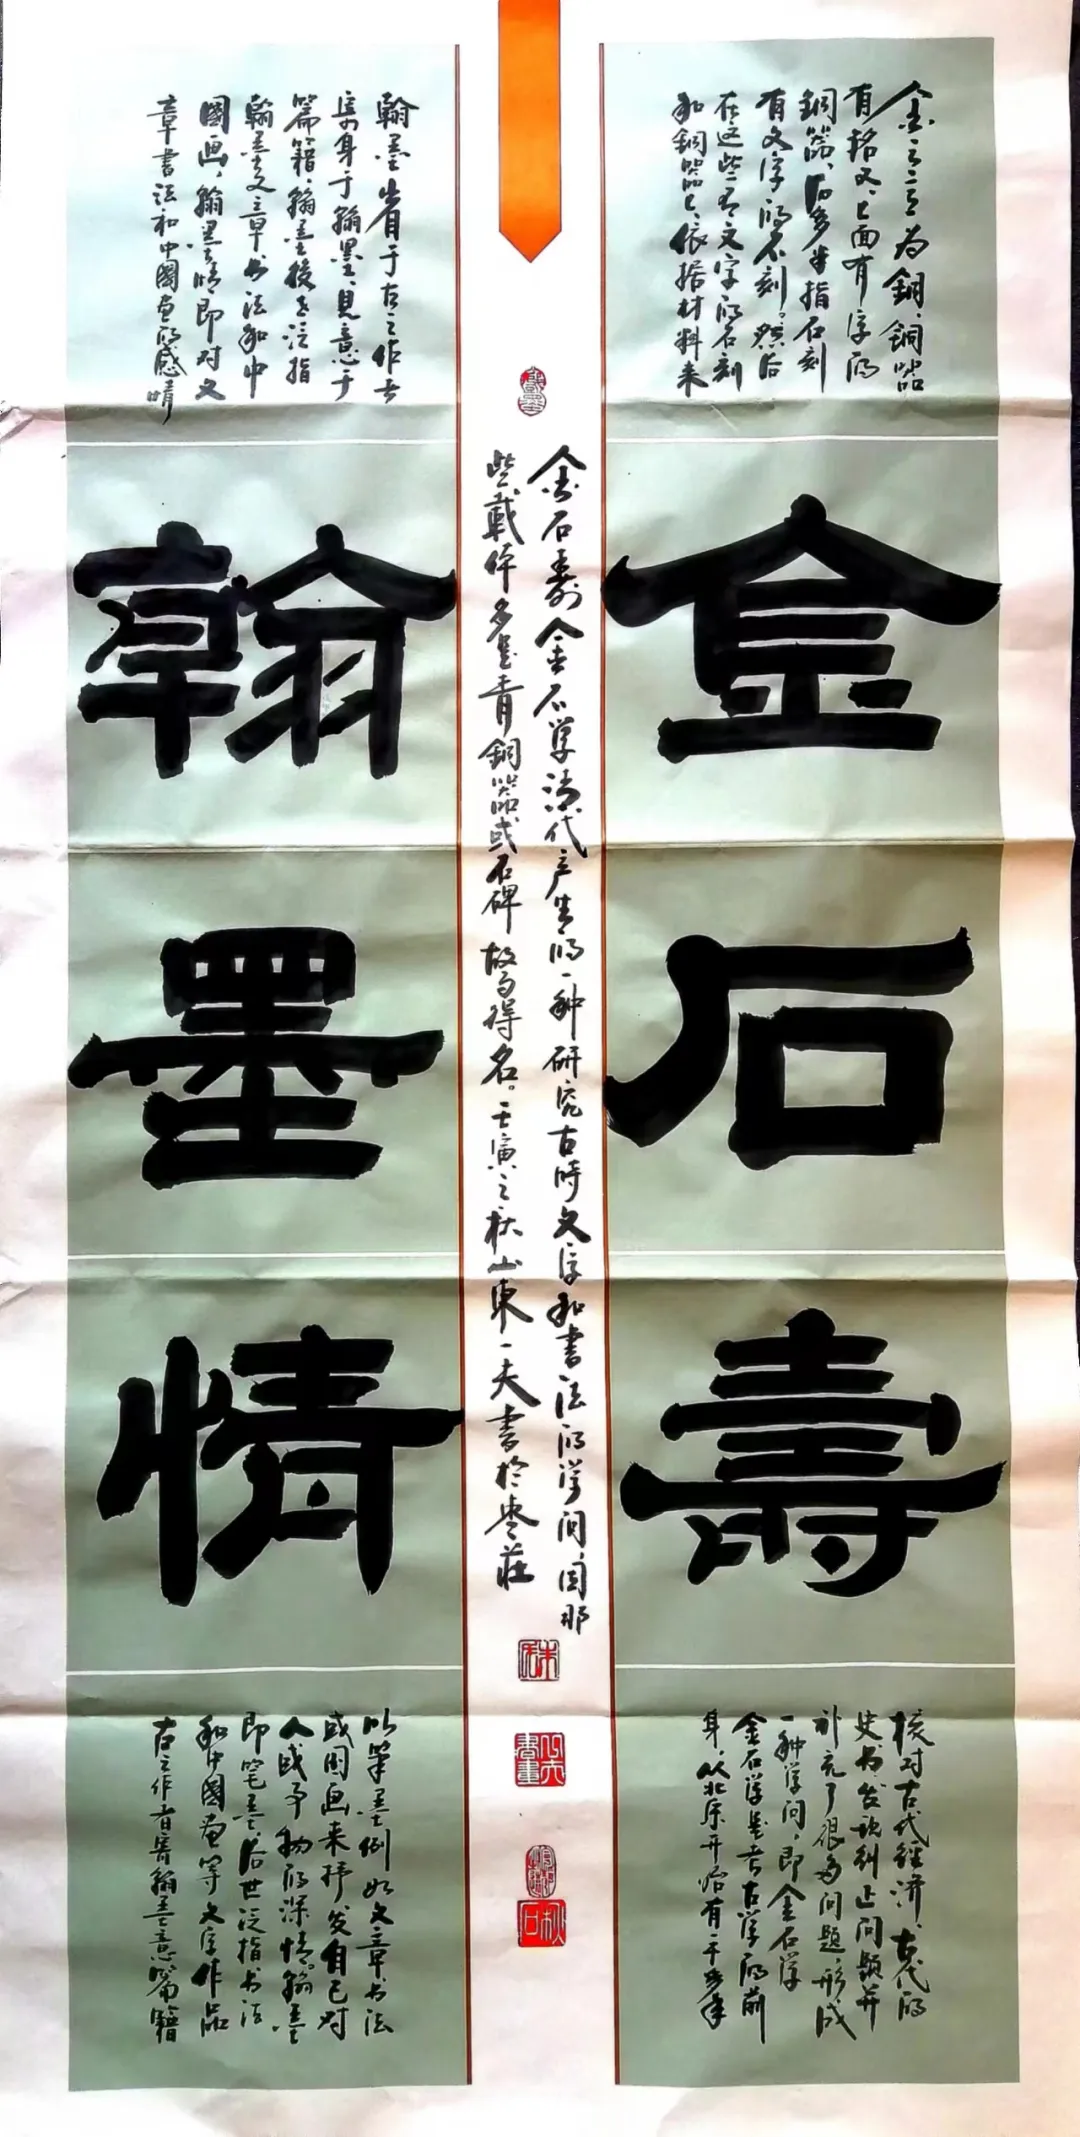 金石壽
翰墨情
金之意为銅、銅器
有铭文、上面有字的
銅器、石多半指石刻
有文字的石刻。然后
在这些有文字的石刻
和銅器上、依据材料来
核对古代經濟、古代的
史书发现纠正问题并
补充了很多问题、形成
一种学问、即金石学
金石学是考古学的前
身、从北宋开始有千多年
金石寿、金石学清代产生的一种研究古時文字和書法的学问、因那
些載体多是青銅器或石碑 故而得名。壬寅之秋山東一夫書於枣莊
翰墨 古之作者
寄身于翰墨、見意于
篇籍、翰墨後世泛指
翰墨文章书法和中
國画、翰墨情即对文
章書法和中國画的感情
以筆墨例如文章书法
或国画来抒发自己对
人或事物的深情。翰墨
即笔墨、后世泛指书法
和中國画等文字作品
古之作者寄翰墨意篇籍